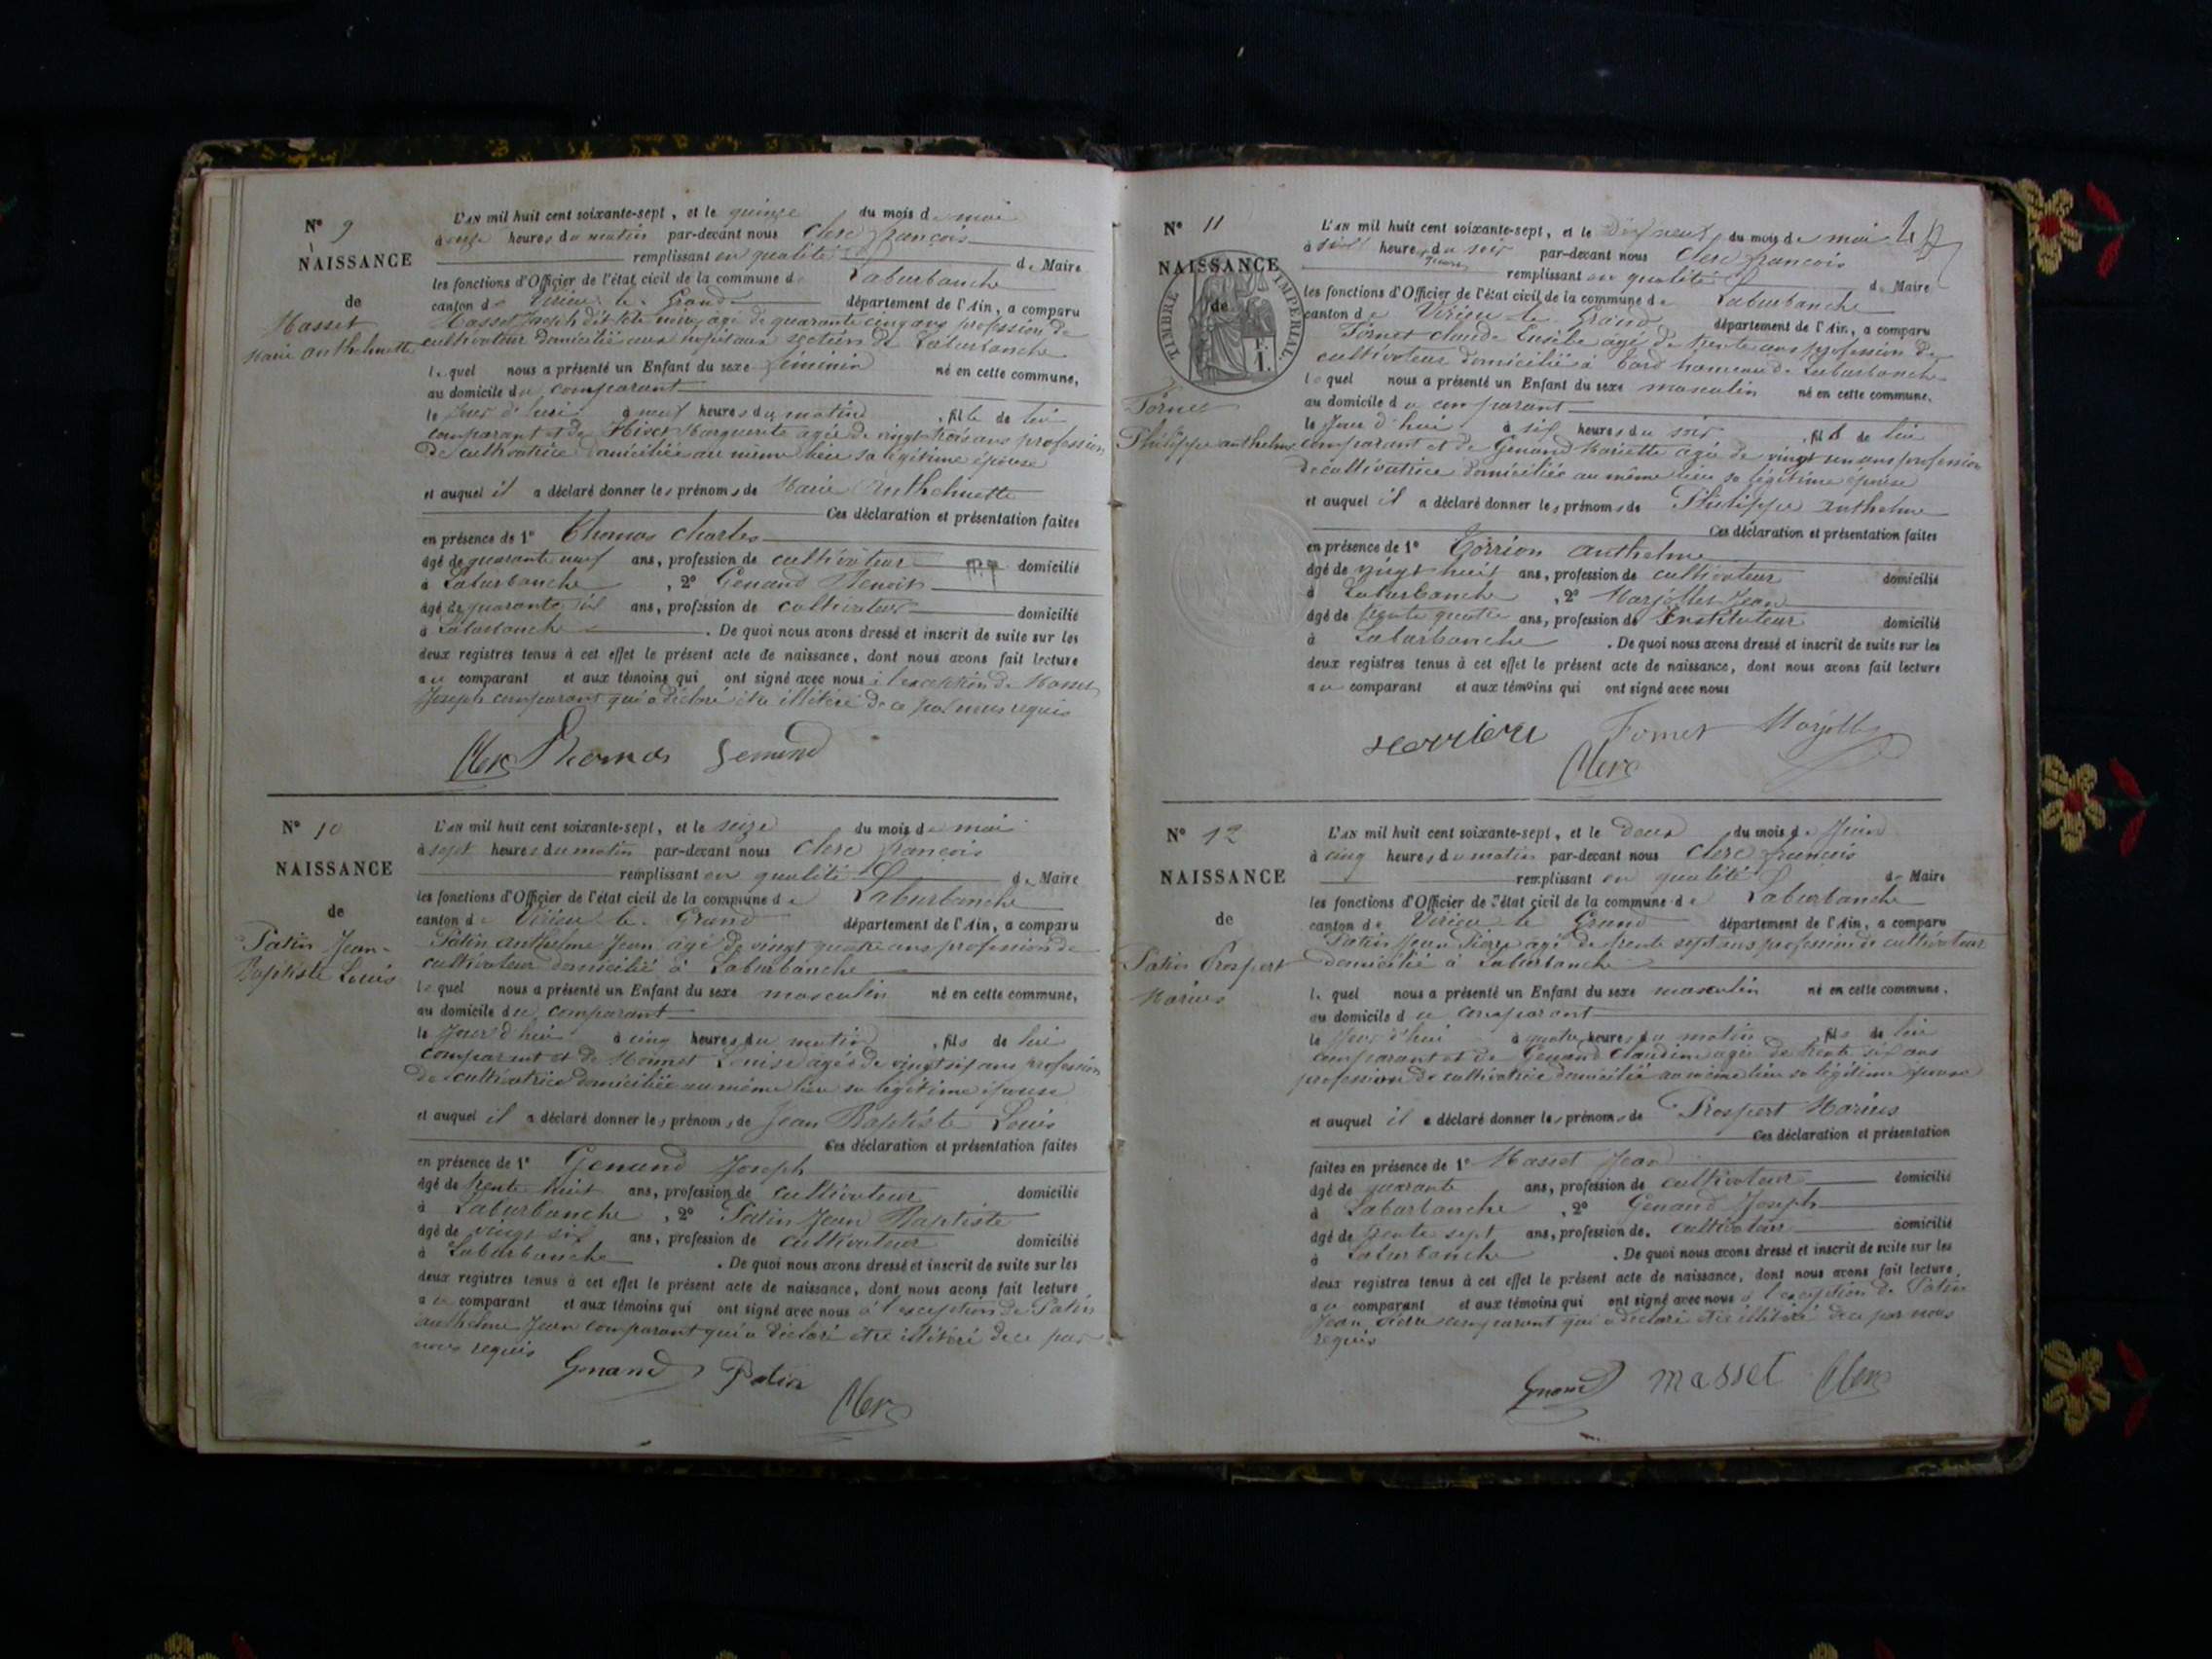 N° 9
NAISSANCE
de
Masset
Marie Anthelmette
L'AN mil huit cent soixante-sept, et le quinze du mois de mai
à onze heures du matin par-devant nous Clerc françois
remplissant en qualité de Maire
les fonctions d'Officier de l'état civil de la commune de Laburbanche
canton de Virieu le Grand département de l'Ain, a comparu
Masset Joseph dit âgé de quarante cinq ans profession de
cultivateur domicilié aux section de Laburbanche
lequel nous a présenté un Enfant du sexe féminin né en cette commune,
au domicile du comparant
le jour d'hui à neuf heures du matin, fille de lui
comparant et de Marguerite agée de vingt trois ans profession
de cultivatrice domiciliée au même lieu sa légitime épouse
et auquel il a déclaré donner les prénoms de Marie Anthelmette
Ces déclaration et présentation faites
en présence de 1° Thomas Charles
âgé de quarante neuf ans, profession de cultivateur domicilié
à Laburbanche, 2° Genand Benoit
âgé de quarante six ans, profession de cultivateur domicilié
à Laburbanche. De quoi nous avons dressé et inscrit de suite sur les
deux registres tenus à cet effet le présent acte de naissance, dont nous avons fait lecture
au comparant et aux témoins qui ont signé avec nous à l'exception de Masset
Joseph comparant qui a déclaré être illitéré de ce par nous requis
Clerc Thomas Genand
N° 10
NAISSANCE
de
Patin Jean-
Baptiste Louis
L'AN mil huit cent soixante-sept, et le seize du mois de mai
à sept heures du matin par-devant nous Clerc françois
remplissant en qualité de Maire
les fonctions d'Officier de l'état civil de la commune de Laburbanche
canton de Virieu le Grand département de l'Ain, a comparu
Patin Anthelme Jean âgé de vingt quatre ans profession de
cultivateur domicilié à Laburbanche
lequel nous a présenté un Enfant du sexe masculin né en cette commune,
au domicile du comparant
le jour d'hui à cinq heures du matin, fils de lui
comparant et de Louise agée de vingt six ans profession
de cultivatrice domiciliée au même lieu sa légitime épouse
et auquel il a déclaré donner les prénoms de Jean Baptiste Louis
Ces déclaration et présentation faites
en présence de 1° Genand Joseph
âgé de trente huit ans, profession de cultivateur domicilié
à Laburbanche, 2° Patin Jean Baptiste
âgé de vingt six ans, profession de cultivateur domicilié
à Laburbanche. De quoi nous avons dressé et inscrit de suite sur les
deux registres tenus à cet effet le présent acte de naissance, dont nous avons fait lecture
au comparant et aux témoins qui ont signé avec nous à l'exception de Patin
Anthelme Jean comparant qui a déclaré être illitéré de ce par
nous requis
Gnand Patin
Clerc
N° 11
NAISSANCE
de
TIMBRE IMPERIAL
Fornet
Philippe Anthelme
L'AN mil huit cent soixante-sept, et le dix neuf du mois de mai
à heures du soir par-devant nous Clerc françois
remplissant en qualité de Maire
les fonctions d'Officier de l'état civil de la commune de Laburbanche
canton de Virieu le Grand département de l'Ain, a comparu
Fornet Claude Eusèbe âgé de trente ans profession de
cultivateur domicilié à hameau de Laburbanche
lequel nous a présenté un Enfant du sexe masculin né en cette commune.
au domicile du comparant
le Jour d'hui à six heures du soir, fils de lui
comparant et de Genand Mariette agée de vingt un ans profession
de cultivatrice domiciliée au même lieu sa légitime épouse
et auquel il a déclaré donner les prénoms de Philippe Anthelme
Ces déclaration et présentation faites
en présence de 1° Torrion Anthelme
âgé de vingt huit ans, profession de cultivateur domicilié
à Laburbanche, 2° Marjollet Jean
âgé de trente quatre ans, profession de Instituteur domicilié
à Laburbanche. De quoi nous avons dressé et inscrit de suite sur les
deux registres tenus à cet effet le présent acte de naissance, dont nous avons fait lecture
au comparant et aux témoins qui ont signé avec nous
Fornet
Clerc
N° 12
NAISSANCE
de
Patin Prospert
Marius
L'AN mil huit cent soixante-sept, et le deux du mois de Juin
à cinq heures du matin par-devant nous Clerc françois
remplissant en qualité de Maire
les fonctions d'Officier de l'état civil de la commune de Laburbanche
canton de Virieu le Grand département de l'Ain, a comparu
Patin Jean Pierre âgé de trente sept ans profession de cultivateur
domicilié à Laburbanche
lequel nous a présenté un Enfant du sexe masculin né en cette commune.
au domicile du comparant
le Jour d'hui à quatre heures du matin, fils de lui
comparant et de Genand Claudine agée de trente six ans
profession de cultivatrice domicilié au même lieu sa légitime épouse
et auquel il a déclaré donner les prénoms de Prospert Marius
Ces déclaration et présentation
faites en présence de 1° Masset Jean
âgé de quarante ans, profession de cultivateur domicilié
à Laburbanche, 2° Genand Joseph
âgé de trente sept ans, profession de. cultivateur domicilié
à Laburbanche. De quoi nous avons dressé et inscrit de suite sur les
deux registres tenus à cet effet le présent acte de naissance, dont nous avons fait lecture
au comparant et aux témoins qui ont signé avec nous à l'exception de Patin
Jean Pierre comparant qui a déclaré être illitéré de ce par nous
requis
Gnand masset Clerc